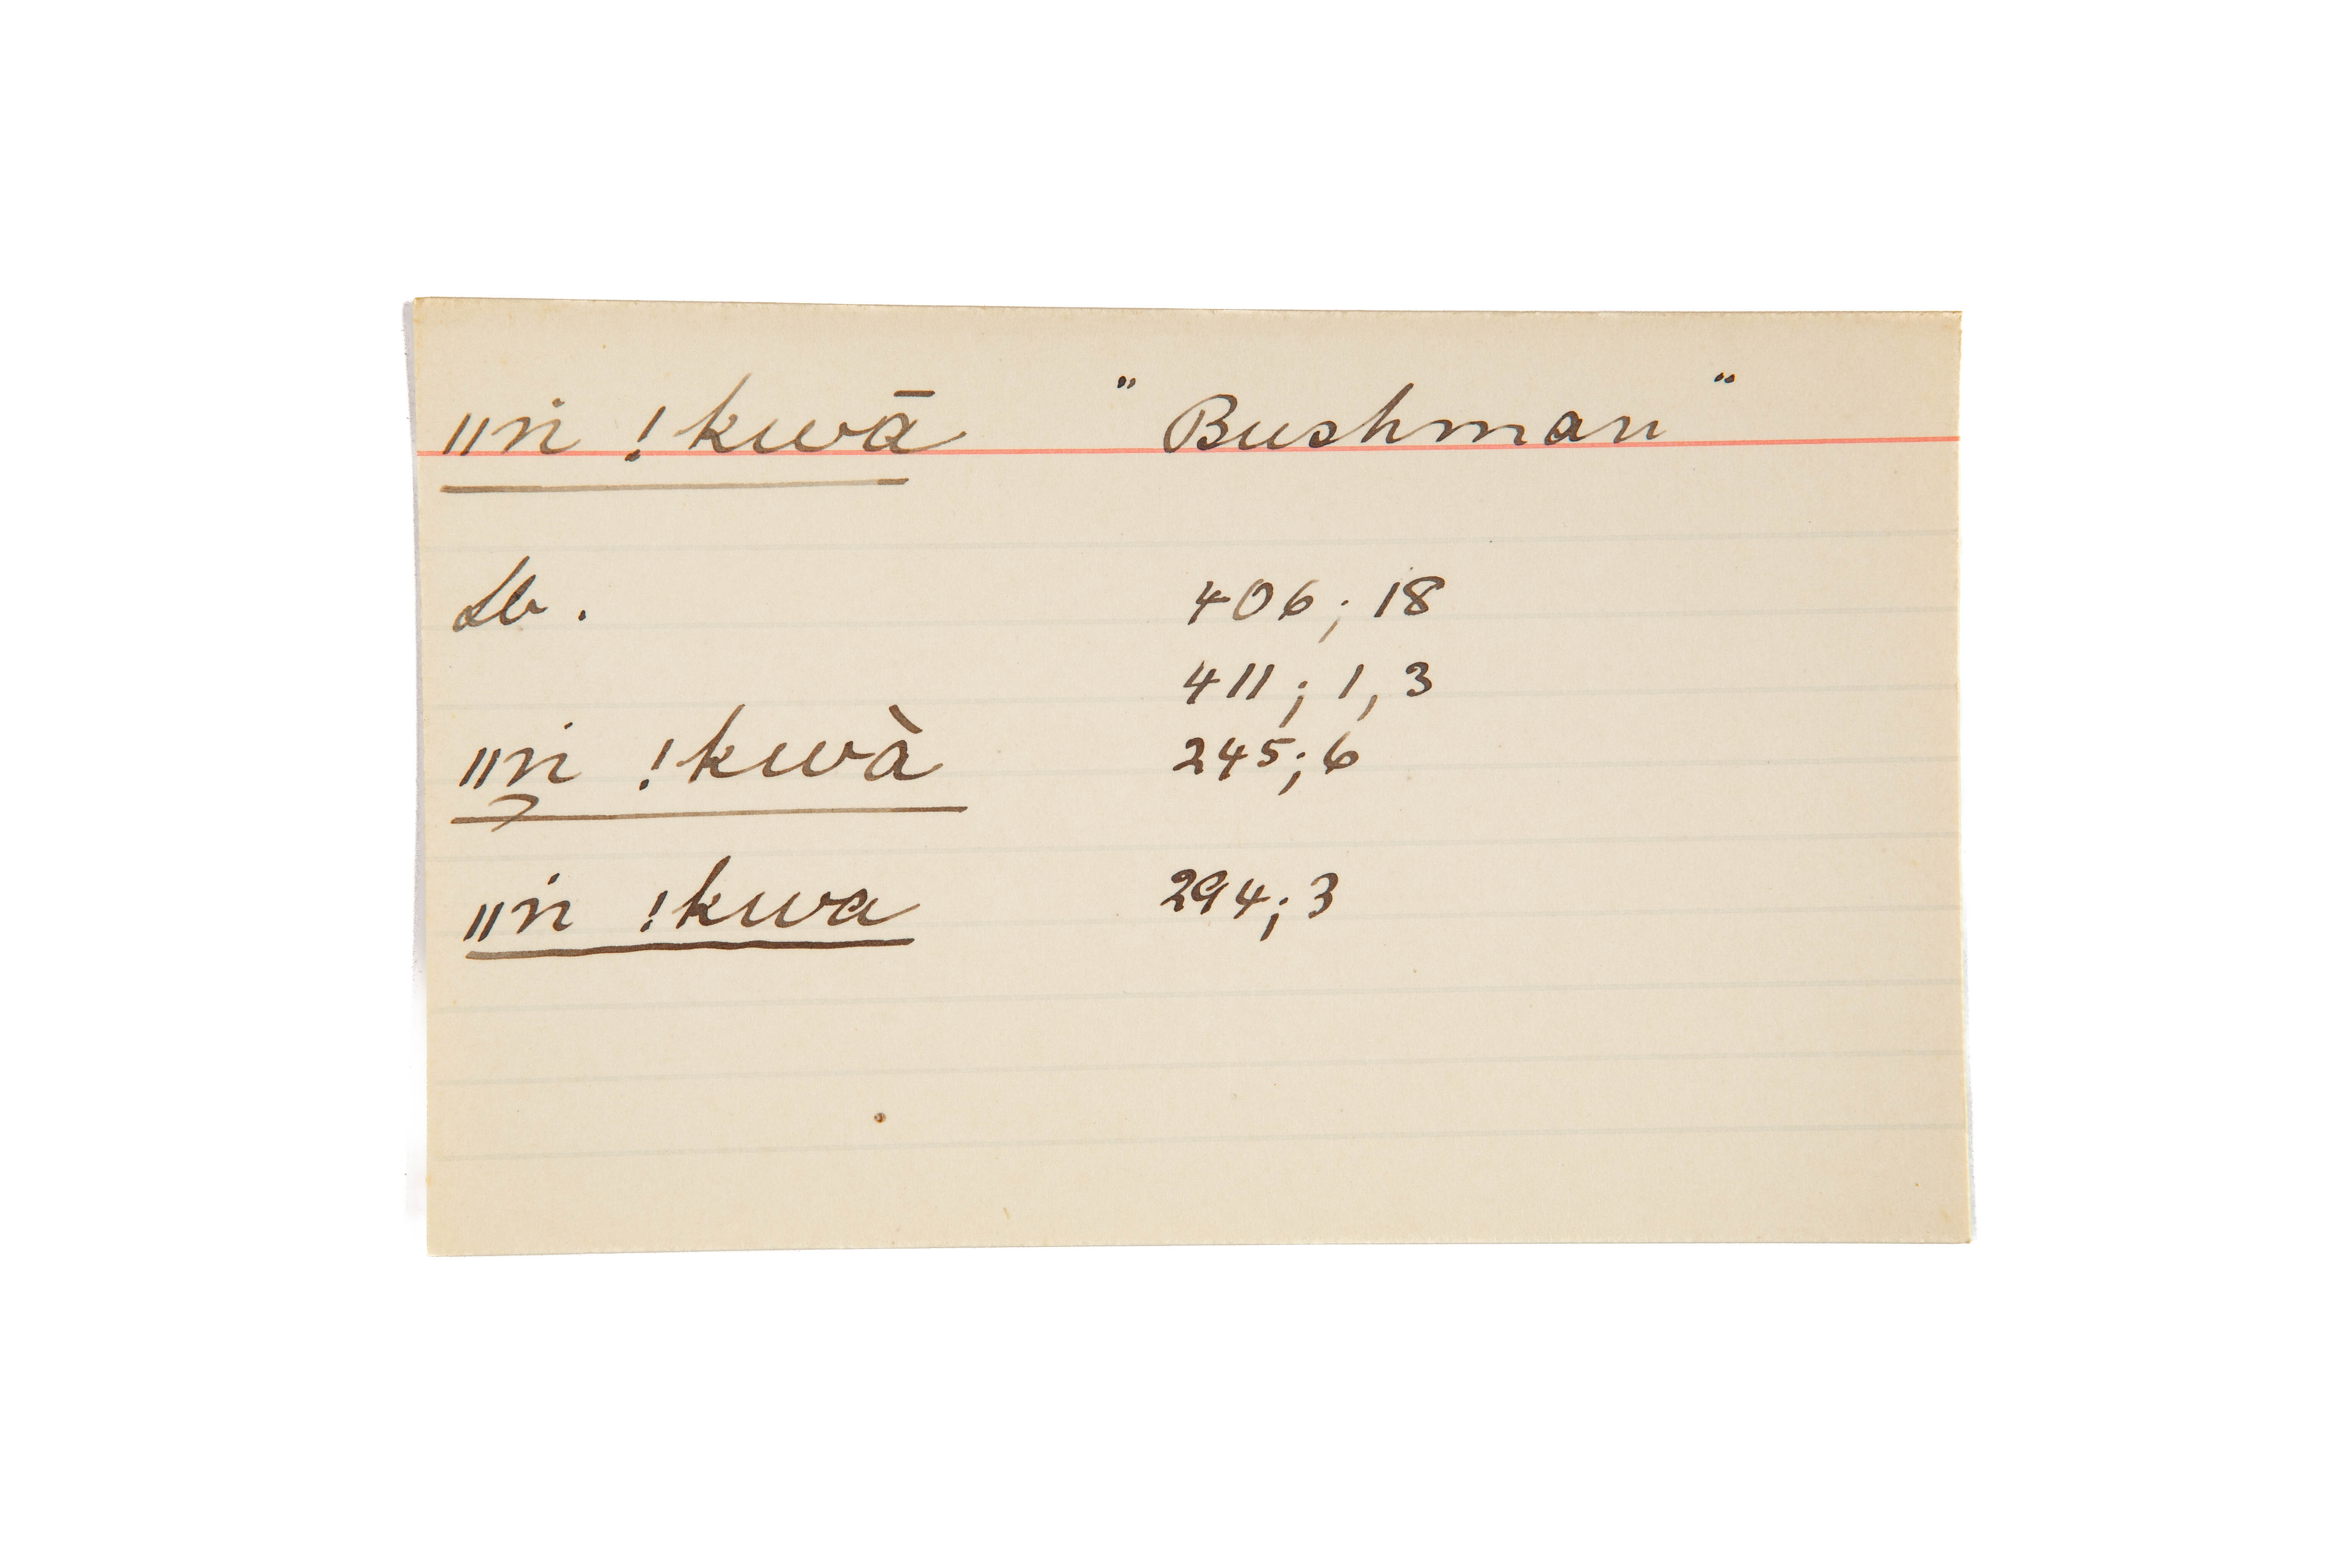 ǁṅ !kwā " Bushman "
Lb. 406; 18
411; 1, 3
ǁṅ !kwà 245; 6
ǁṅ !kwa 294; 3